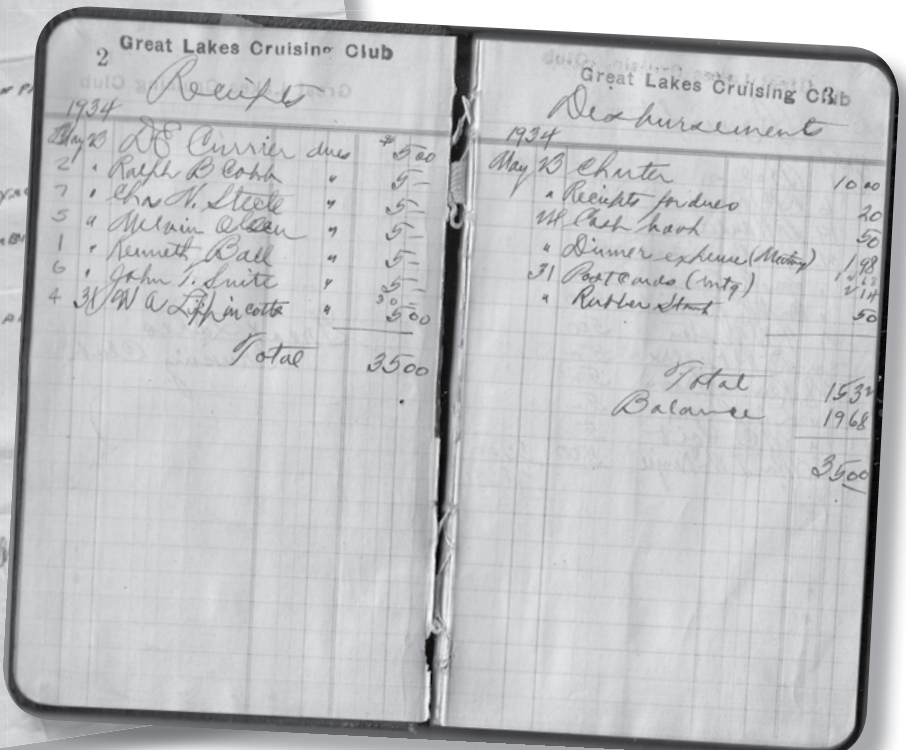 2 Great Lakes Cruising Club
Receipts
1934
May 23 DE Currier dues $5 00
2 " Ralph B Cobb " 5 –
7 " Chas N. Steele " 5 –
5 " Melvin Olsen " 5 –
1 " Kenneth Ball " 5 –
6 " John T. Snite " 5 –
4 31 W A Lippincott " 5 00
Total 35 00
Great Lakes Cruising Club 3
Disbursements
1934
May 23 Charter 10 00
" Receipts for dues 20
24 Cash book 50
" Dinner expense (Meeting) 1 98
31 Post Cards (mtg) 2 14
" Rubber Stamp 50
Total 15 32
Balance 19 68
35 00